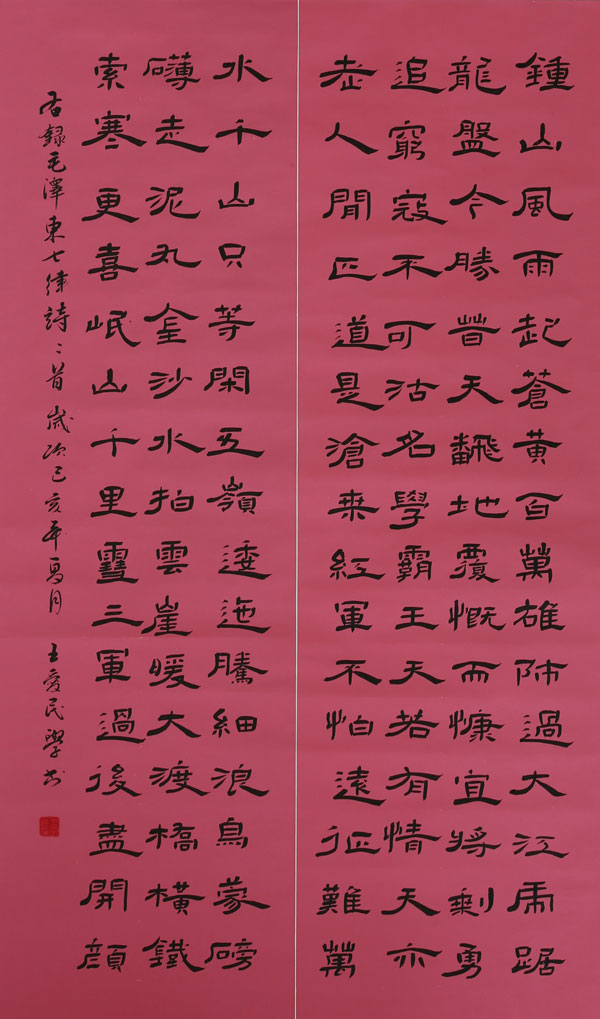 鍾山風雨起蒼黃百萬雄師過大江虎踞
龍盤今勝昔天飜地覆慨而慷宜將剩勇
追窮寇不可沽名學霸王天若有情天亦
老人間正道是滄桒紅軍不怕遠征難萬
水千山只等閑五嶺逶迤騰細浪烏蒙磅
礴走泥丸金沙水拍雲崖暖大渡橋橫鐵
索寒更喜岷山千里雪三軍過後盡開顏
右錄毛澤東七律詩二首 歲次己亥年夏月 王愛民學書